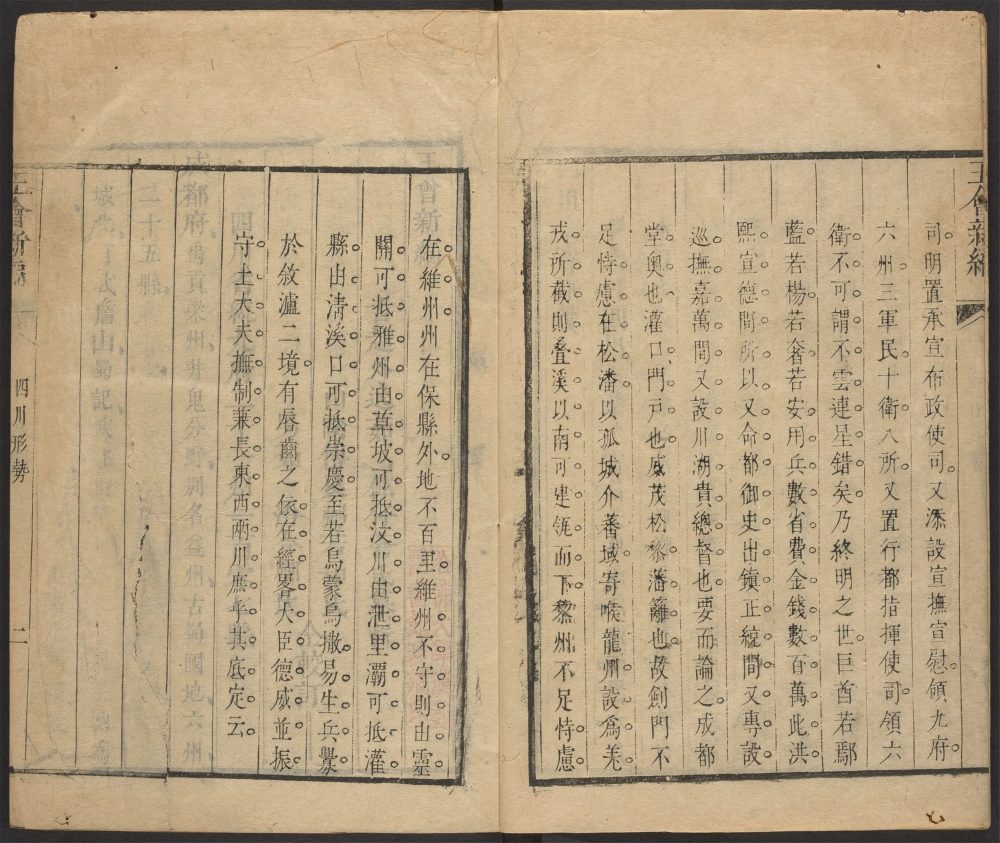 王會新編
司明置承宣布政使司又添設宣撫宣慰領九府
六州三軍民十衛八所又置行都指揮使司領六
衛不可謂不雲連星錯矣乃終明之世巨酋若鄢
藍若楊若奢若安用兵數省費金錢數百萬此洪
熙宣德間所以又命都御史出鎮正統間又專設
巡撫嘉萬間又設川湖貴總督也要而論之成都
堂奧也灌口門戸也威茂松黎藩籬也故劍門不
足恃慮在松潘以孤城介蕃域寄喉龍州設爲羌
戎所截則叠溪以南可建瓴而下黎州不足恃慮
在維州州在保縣外地不百里維州不守則由靈
關可抵雅州由草坡可抵汶川由泄里灞可抵灌
縣由清溪口可抵崇慶至若烏蒙烏撒易生兵釁
於敘瀘二境有唇齒之依在經畧大臣德威並振
守土大夫撫制兼長東西兩川庶乎其底定云
王會新編
四川形勢
二